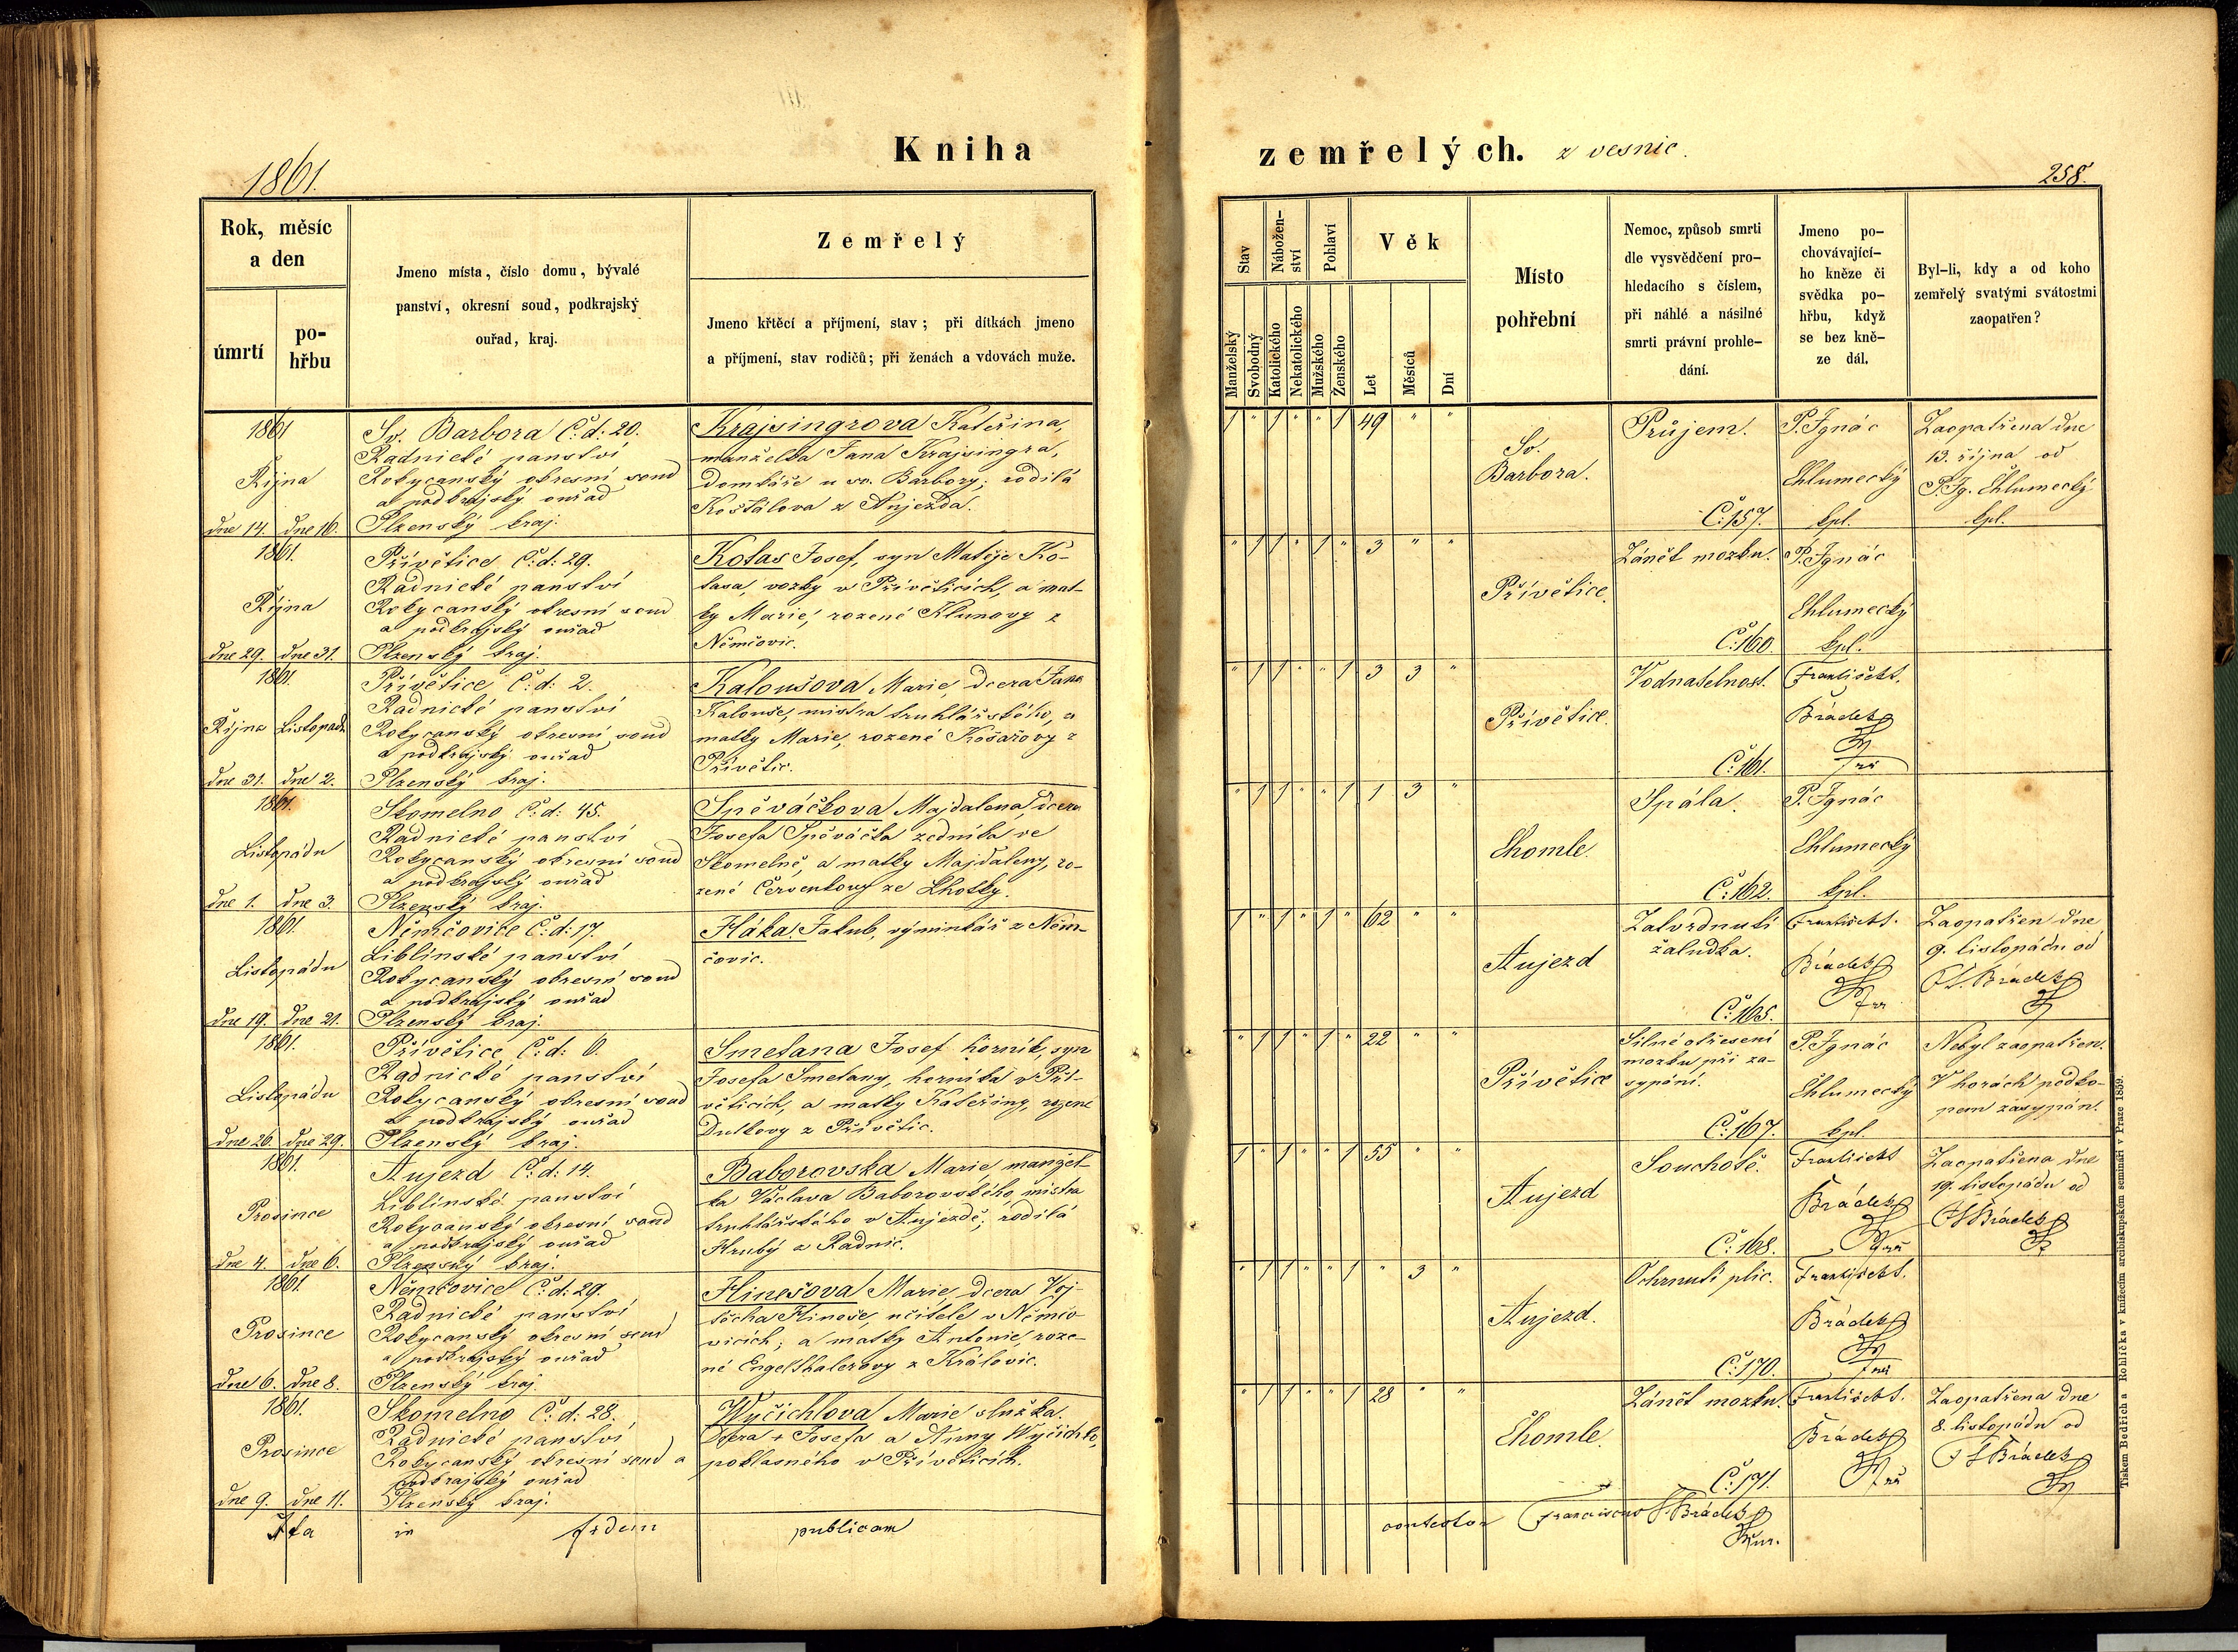 1861.
Kniha
zemřelých. z vesnic.
258.
Rok, měsíc
a den
úmrtí
po-
hřbu
Jmeno místa, číslo domu, bývalé
panství, okresní soud, podkrajský
ouřad, kraj.
Zemřelý
Jmeno křtěcí a příjmení, stav; při dítkách jmeno
a příjmení, stav rodičů; při ženách a vdovách muže.
Stav
Nábožen-
ství
Pohlaví
Věk
Manželský
Svobodný
Katolického
Nekatolického
Mužského
Ženského
Let
Měsíců
Dní
Místo
pohřební
Nemoc, způsob smrti
dle vysvědčení pro-
hledacího s číslem,
při náhlé a násilné
smrti právní prohle-
dání.
Jmeno po-
chovávající-
ho kněze či
svědka po-
hřbu, když
se bez kně-
ze dál.
Byl-li, kdy a od koho
zemřelý svatými svátostmi
zaopatřen?
1861
Října
dne 14. dne 16.
Sv. Barbora Č: d: 20.
Radnické panství
Rokycanský okresní soud
a podkrajský ouřad
Plzenský kraj.
Krajsingrova Kateřina,
manželka Jana Krajsingra,
domkáře u sv. Barbory; rodilá
Košťálova z Aujezda.
1 " 1 " " 1 49 " "
Sv.
Barbora.
Průjem.
Č: 157.
P. Ignác
Chlumecký
kpl.
Zaopatřena dne
13. října od
P. Ig. Chlumecký
kpl.
1861.
Října
dne 29. dne 31.
Přívětice Č: d: 29.
Radnické panství
Rokycanský okresní soud
a podkrajský ouřad
Plzenský kraj.
Kotas Josef, syn Matěje Ko-
tasa, vozky v Přívěticích, a mat-
ky Marie, rozené Klunovy z
Němčovic.
" 1 1 " 1 " 3 " "
Přívětice.
Zánět mozku.
Č: 160.
P. Ignác
Chlumecký
kpl.
1861.
Října Listopadu
dne 31. dne 2.
Přívětice Č: d: 2.
Radnické panství
Rokycanský okresní soud
a podkrajský ouřad
Plzenský kraj.
Kaloušova Marie, dcera Jana
Kalouše, mistra truhlářského, a
matky Marie, rozené Košařovy z
Přívětic.
" 1 1 " " 1 3 3 "
Přívětice.
Vodnatelnost.
Č: 161.
František S.
Brádek
1861.
Listopádu
dne 1. dne 3.
Skomelno Č: d: 45.
Radnické panství
Rokycanský okresní soud
a podkrajský ouřad
Plzenský kraj.
Spěváčkova Majdalena, dcera
Josefa Spěváčka zedníka ve
Skomelně, a matky Majdaleny, ro-
zené Červenkovy ze Lhotky.
" 1 1 " " 1 1 3 "
Chomle.
Spála.
Č: 162.
P. Ignác
Chlumecký
kpl.
1861.
Listopádu
dne 19. dne 21.
Němčovice Č: d: 17.
Liblínské panství
Rokycanský okresní soud
a podkrajský ouřad
Plzenský kraj.
Hláka Jakub, výminkář z Něm-
čovic.
1 " 1 " 1 " 62 " "
Aujezd
Zatvrdnutí
žaludka.
Č: 165.
František S.
Brádek
Zaopatřen dne
9. listopádu od
Brádek
1861.
Listopádu
dne 26. dne 29.
Přívětice Č: d: 6.
Radnické panství
Rokycanský okresní soud
a podkrajský ouřad
Plzenský kraj.
Smetana Josef horník, syn
Josefa Smetany, horníka v Pří-
věticích, a matky Kateřiny, rozené
Dutkovy z Přívětic.
" 1 1 " 1 " 22 " "
Přívětice
Silné otřesení
mozku při za-
sypání.
Č: 167.
P. Ignác
Chlumecký
kpl.
Nebyl zaopatřen.
V horách podko-
pem zasypán.
1861.
Prosince
dne 4. dne 6.
Aujezd Č: d: 14.
Liblínské panství
Rokycanský okresní soud
a podkrajský ouřad
Plzenský kraj.
Baborovska Marie manžel-
ka Václava Baborovského, mistra
truhlářského v Aujezdě; rodilá
Hrubý z Radnic.
1 " 1 " " 1 55 " "
Aujezd
Souchotě.
Č: 168.
František S.
Brádek
Zaopatřena dne
19. listopádu od
Brádek
1861.
Prosince
dne 6. dne 8.
Němčovice Č: d: 29.
Radnické panství
Rokycanský okresní soud
a podkrajský ouřad
Plzenský kraj.
Hinešova Marie, dcera Voj-
těcha Hineše, učitele v Němčo-
vicích; a matky Antonie, roze-
né Engelthalerovy z Královic.
" 1 1 " " 1 " 3 "
Aujezd.
Ochrnutí plic.
Č: 170.
František S.
Brádek
1861.
Prosince
dne 9. dne 11.
Skomelno Č: d: 28.
Radnické panství
Rokycanský okresní soud a
podkrajský ouřad
Plzenský kraj.
Wyčichlova Marie služka.
Dcera + Josefa a Anny Wyčichlo,
poklasného v Přívěticích.
" 1 1 " " 1 28 " "
Chomle.
Zánět mozku.
Č: 171.
František S.
Brádek
Zaopatřena dne
8. listopádu od
Brádek
Ita in fidem publicam contestor Franciscus S. Brádek
Tiskem Bedřicha Rohlíčka v knížecím arcibiskupském semináři v Praze 1859.